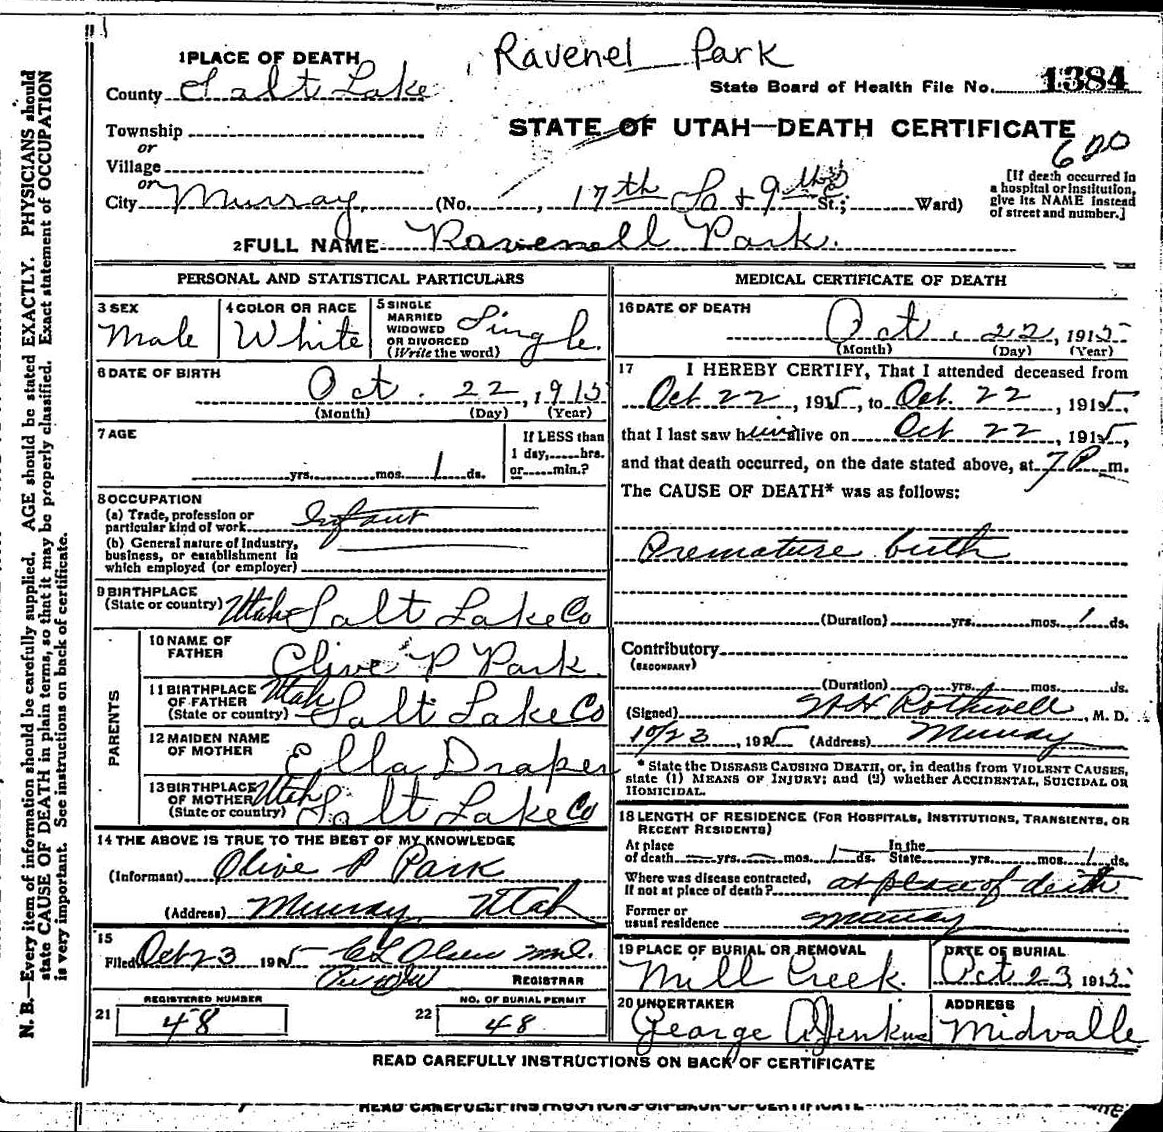 Ravenel Park
1 PLACE OF DEATH
County Salt Lake
State Board of Health File No. 1384
Township
or
Village
or
City Murray (No. , 17th So + 9th St.; Ward)
STATE OF UTAH—DEATH CERTIFICATE
600
[If death occurred in
a hospital or institution,
give its NAME instead
of street and number.]
2 FULL NAME Ravenell Park.
PERSONAL AND STATISTICAL PARTICULARS
3 SEX
Male
4 COLOR OR RACE
White
5 SINGLE
MARRIED
WIDOWED
OR DIVORCED
(Write the word)
Single.
6 DATE OF BIRTH
Oct. 22, 1915
(Month) (Day) (Year)
7 AGE
yrs. mos. 1 ds.
If LESS than
1 day, hrs.
or min.?
8 OCCUPATION
(a) Trade, profession or
particular kind of work Infant
(b) General nature of industry,
business, or establishment in
which employed (or employer)
9 BIRTHPLACE
(State or country) Utah Salt Lake Co
PARENTS
10 NAME OF
FATHER Olive P Park.
11 BIRTHPLACE
OF FATHER
(State or country) Utah Salt Lake Co
12 MAIDEN NAME
OF MOTHER Ella Draper
13 BIRTHPLACE
OF MOTHER
(State or country) Utah Salt Lake Co
14 THE ABOVE IS TRUE TO THE BEST OF MY KNOWLEDGE
(Informant) Olive P Park
(Address) Murray, Utah
15
Filed Oct 23 1915 C L Olsen
REGISTRAR
REGISTERED NUMBER
21 48
NO. OF BURIAL PERMIT
22 48
MEDICAL CERTIFICATE OF DEATH
16 DATE OF DEATH
Oct. 22, 1915
(Month) (Day) (Year)
17 I HEREBY CERTIFY, That I attended deceased from
Oct 22, 1915, to Oct. 22, 1915,
that I last saw him alive on Oct 22, 1915,
and that death occurred, on the date stated above, at 7 P. m.
The CAUSE OF DEATH* was as follows:
Premature birth
(Duration) yrs. mos. 1 ds.
Contributory
(SECONDARY)
(Duration) yrs. mos. ds.
(Signed) Rothwell, M. D.
10/23, 1915 (Address) Murray
* State the DISEASE CAUSING DEATH, or, in deaths from VIOLENT CAUSES,
state (1) MEANS OF INJURY; and (2) whether ACCIDENTAL, SUICIDAL OR
HOMICIDAL.
18 LENGTH OF RESIDENCE (FOR HOSPITALS, INSTITUTIONS, TRANSIENTS, OR
RECENT RESIDENTS)
At place
of death yrs. mos. 1 ds. In the State yrs. mos. 1 ds.
Where was disease contracted,
if not at place of death? at place of death
Former or
usual residence Murray
19 PLACE OF BURIAL OR REMOVAL
Mill Creek.
DATE OF BURIAL
Oct 23, 1915
20 UNDERTAKER
George A Jenkins
ADDRESS
Midvalle
READ CAREFULLY INSTRUCTIONS ON BACK OF CERTIFICATE
READ CAREFULLY INSTRUCTIONS ON BACK OF CERTIFICATE
N. B.—Every item of information should be carefully supplied. AGE should be stated EXACTLY. PHYSICIANS should
state CAUSE OF DEATH in plain terms, so that it may be properly classified. Exact statement of OCCUPATION
is very important. See instructions on back of certificate.